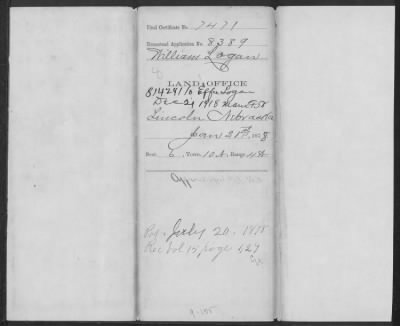 Final Certificate No. 7471
Homestead Application No. 8389
William Logan
LAND OFFICE
814291 10 Effa Logan
Dec 21 1918
Lincoln Nebraska
Jan 21st
Sect. 6, Town. 10 N., Range 4
Approved
July 20, 1878
Rec Vol 15, page 527